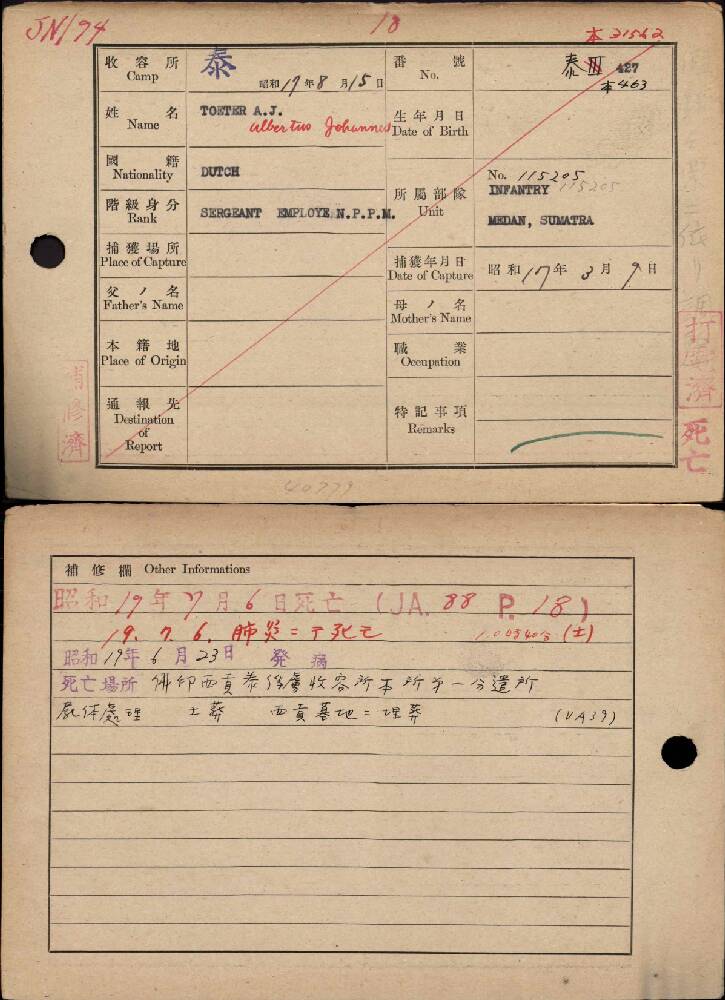 JN194
18
本 31562
收容所 Camp
泰
昭和17年8月15日
番號 No.
泰Ⅲ 427
本463
姓名 Name
TOETER A.J.
Albertus Johannes
生年月日 Date of Birth
國籍 Nationality
DUTCH
所屬部隊 Unit
No. 115205
115205
INFANTRY
MEDAN, SUMATRA
階級身分 Rank
SERGEANT EMPLOYE N.P.P.M.
捕獲場所 Place of Capture
捕獲年月日 Date of Capture
昭和17年3月9日
父ノ名 Father's Name
母ノ名 Mother's Name
本籍地 Place of Origin
職業 Occupation
通報先 Destination of Report
特記事項 Remarks
濟
打電濟
死亡
40779
補修欄 Other Informations
昭和19年7月6日死亡 (JA. 88 P. 18)
19. 7. 6. 肺炎ニテ死亡
(土)
昭和19年6月23日 発病
死亡場所 佛印西貢泰俘虜收容所本所第一分遣所
屍体處理 土葬 西貢墓地ニ埋葬 (VA39)